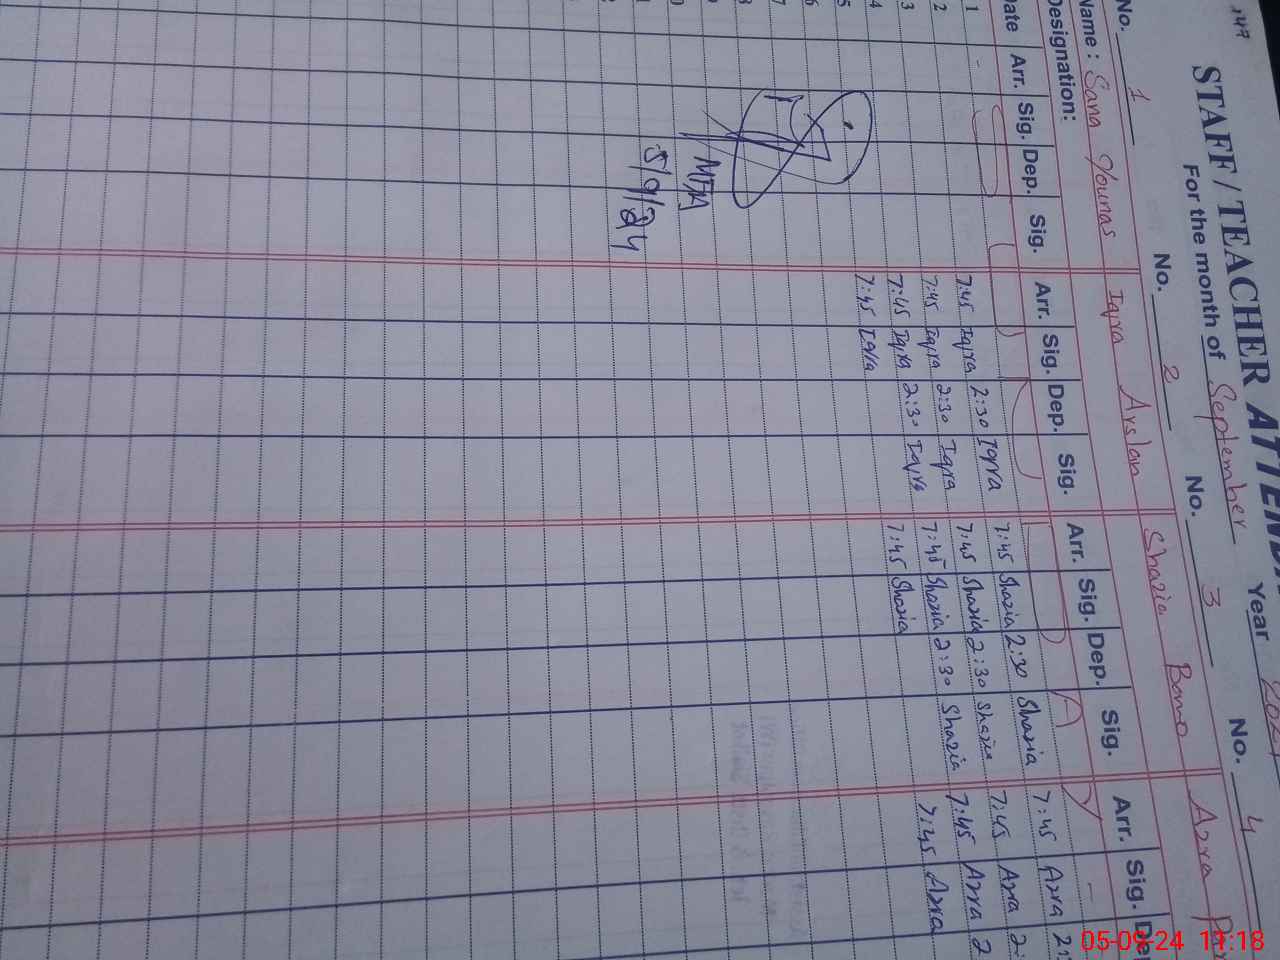 STAFF / TEACHER ATTENDA
For the month of September Year 2024
No. 1 No. 2 No. 3 No. 4
Name : Sana Younas Iqra Arslan Shazia Bano Azra
Designation:
Date Arr. Sig. Dep. Sig. Arr. Sig. Dep. Sig. Arr. Sig. Dep. Sig. Arr. Sig. De
1 -
2 7:45 Iqra 2:30 Iqra 7:45 Shazia 2:30 Shazia 7:45 Azra 2:
3 7:45 Iqra 2:30 Iqra 7:45 Shazia 2:30 Shazia 7:45 Azra 2:
4 7:45 Iqra 2:30 Iqra 7:45 Shazia 2:30 Shazia 7:45 Azra 2
5 7:45 Iqra 7:45 Shazia 7:45 Azra
6
7
8
9
MEA
5/9/24
05-09-24 11:18